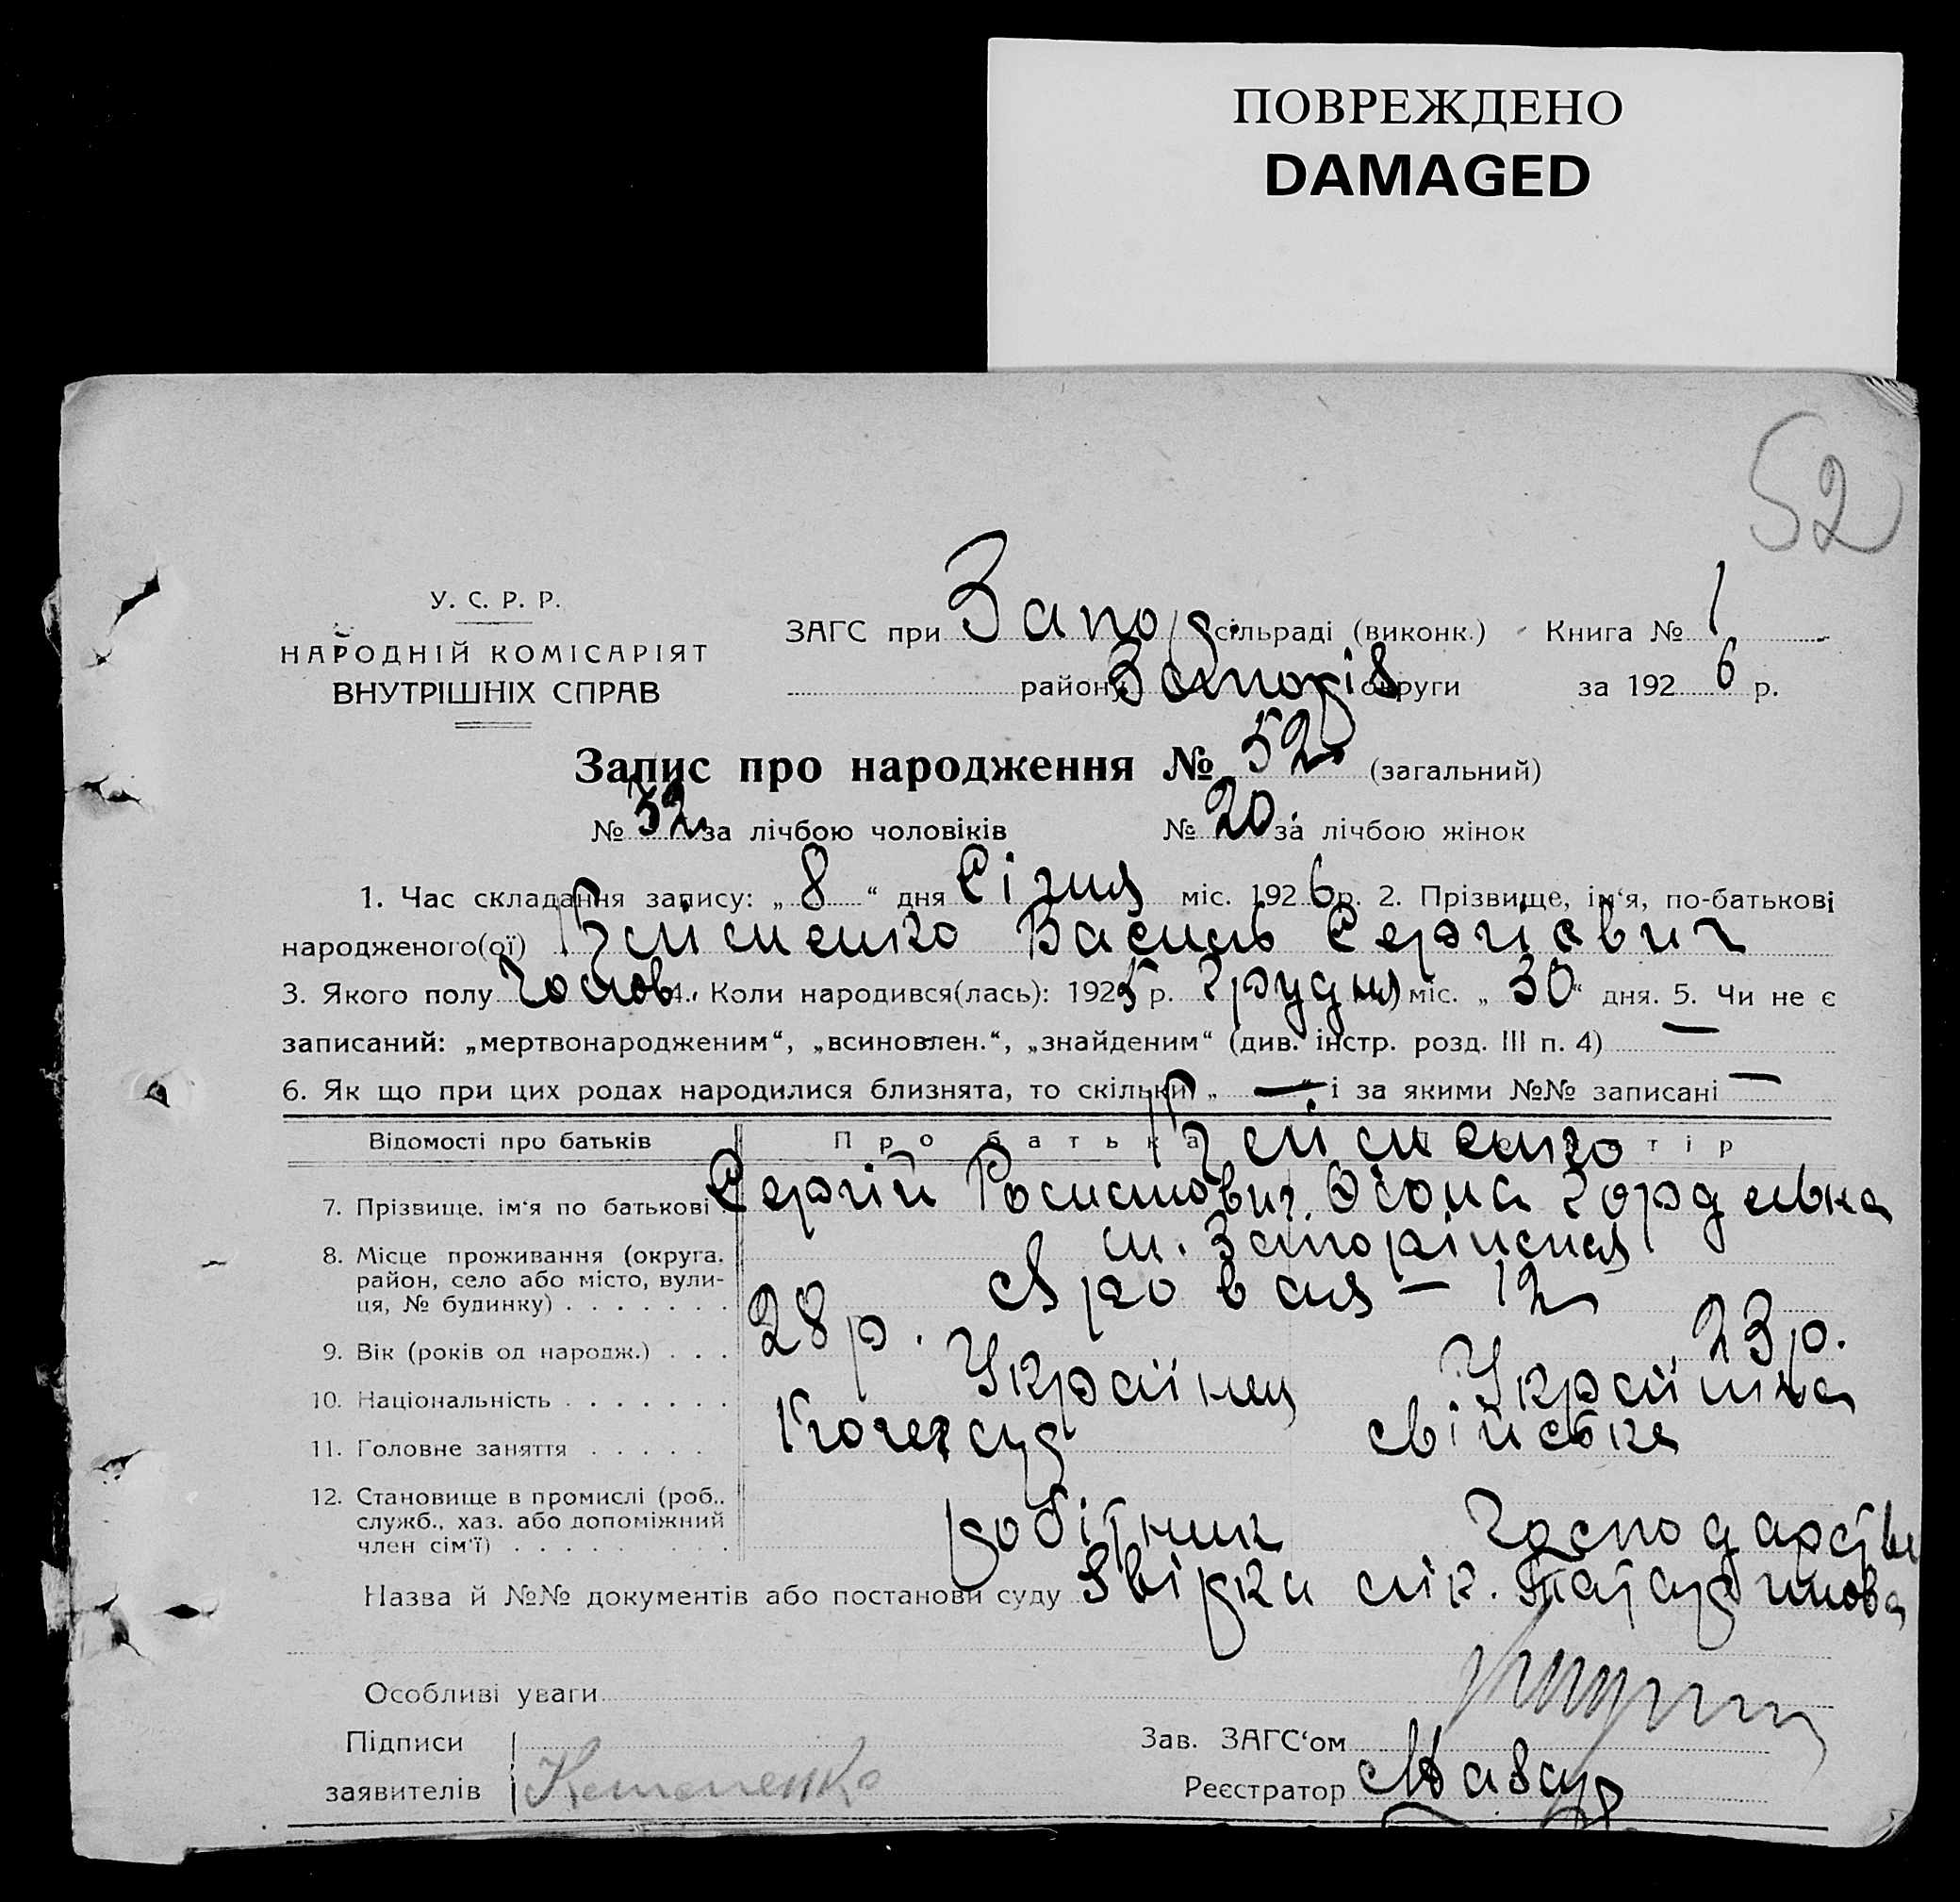 ПОВРЕЖДЕНО
DAMAGED
52
У. С. Р. Р.
НАРОДНІЙ КОМІСАРІЯТ
ВНУТРІШНІХ СПРАВ
ЗАГС при Запор. сільраді (виконк.) Книга № 1
району Запоріз округи за 192 6 р.
Запис про народження № 52 (загальний)
№ 32 за лічбою чоловіків № 20. за лічбою жінок
1. Час складання запису: „ 8 “ дня Січня міс. 192 6 р. 2. Прізвище, ім‘я, по-батькові
народженого(ої) Василь Сергієвич
3. Якого полу Чолов. 4. Коли народився(лась): 192 5 р. Грудня міс. „ 30 “ дня. 5. Чи не є
записаний: „мертвонародженим“, „всиновлен.“, „знайденим“ (див. інстр. розд. III п. 4) —
6. Як що при цих родах народилися близнята, то скільки „ — “ і за якими №№ записані —
Відомості про батьків Про батька тір
7. Прізвище, ім‘я по батькові Сергій
8. Місце проживання (округа, м. Запоріжжя
район, село або місто, вули-
ця, № будинку) . . . . . . . — 12
9. Вік (років од народж.) . . . 28 р. 23 р.
10. Національність . . . . . . . Українец Українка
11. Головне заняття . . . . . Кочегар свійська
12. Становище в промислі (роб.,
служб., хаз. або допоміжний
член сім‘ї) . . . . . . . . . робітник
Назва й №№ документів або постанови суду Звідка лік.
Особливі уваги
Підписи Зав. ЗАГС‘ом
заявителів Реєстратор